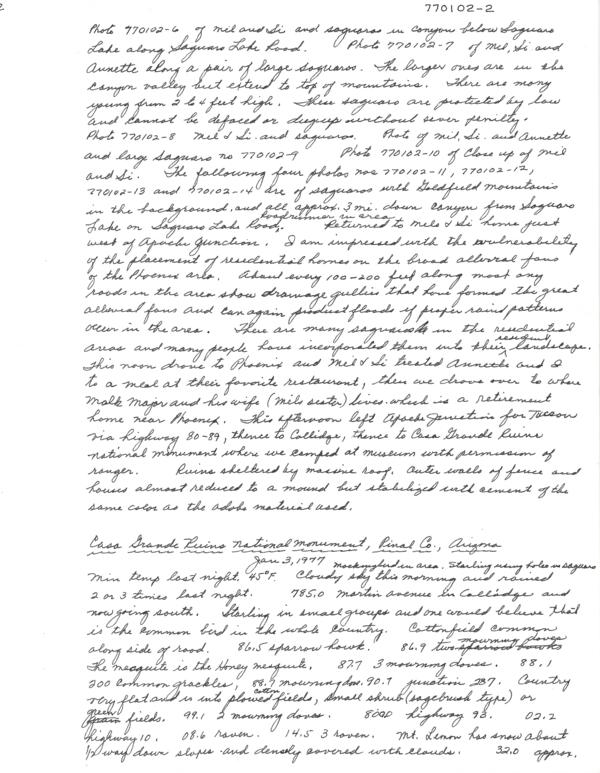 2
770102-2
Photo 770102-6 of mil and Si and saguaros in canyon below Saguaro
Lake along Saguaro Lake Road. Photo 770102-7 of Mel, Si and
Annette along a pair of large saguaros. The larger ones are in the
canyon valley but extend to top of mountains. There are many
young from 2 to 4 feet high. These saguaro are protected by law
and cannot be defaced or dugup without sever penilty.
Photo 770102-8 Mel & Si and saguaros. Photo of mil, Si. and Annette
and large Saguaro no 770102-9 Photo 770102-10 of Close up of Mel
and Si. The following four photos nos 770102-11, 770102-12,
770102-13 and 770102-14 are of saguaros with Goldfield Mountains
in the background. and all approx. 3 mi. down canyon from Saguaro
roadrunner in area
Lake on Saguaro Lake Road. Returned to Mels & Si home just
west of Apache Junction. I am impressed with the vulnerability
of the placement of residential homes on the broad alluvial fans
of the Phoenix area. About every 100-200 feet along most any
roads in the area show drainage gullies that have formed the great
alluvial fans and can again product floods if proper raind patterns
occur in the area. There are many saguaros in the residential
areas and many people have incorporated them into their landscape.
This noon drove to Phoenix and Mel & Si treated Annette and I
to a meal at their favorite restaurant, then we drove over to where
Malk Major and his wife (Mils sister) lives which is a retirement
home near Phoenix. This afternoon left Apache Junction for Tucson
via highway 80-89, thence to Collidge, thence to Casa Grande Ruins
national monument where we camped at museum with permission of
ranger. Ruins sheltered by massive roof. Outer walls of fence and
houses almost reduced to a mound but stabilized with cement of the
same color as the adobe material used.
Casa Grande Ruins National Monument, Pinal Co., Arizona
Jan 3, 1977 mockingbird in area. Starling using holes in saguaro
Min temp last night. 45°F. Cloudy sky this morning and rained
2 or 3 times last night. 785.0 Martin avenue in Collidge and
now going south. Starling in small groups and one would believe that
is the common bird in the whole country. Cottonfield common
along side of road. 86.5 sparrow hawk. 86.9 two mourning doves
The mesquite is the Honey mesquite. 87.7 3 mourning doves. 88.1
200 common grackles, 88.7 mourning dov. 90.9 junction 287. Country
very flat and is into plowed cotton fields, small shrub (sagebrush type) or
green fields. 99.1 2 mourning doves. 800.0 highway 93. 02.2
highway 10. 08.6 raven. 14.5 3 raven. Mt. Lemon has snow about
1/2 way down slopes and densly covered with clouds. 32.0 approx.